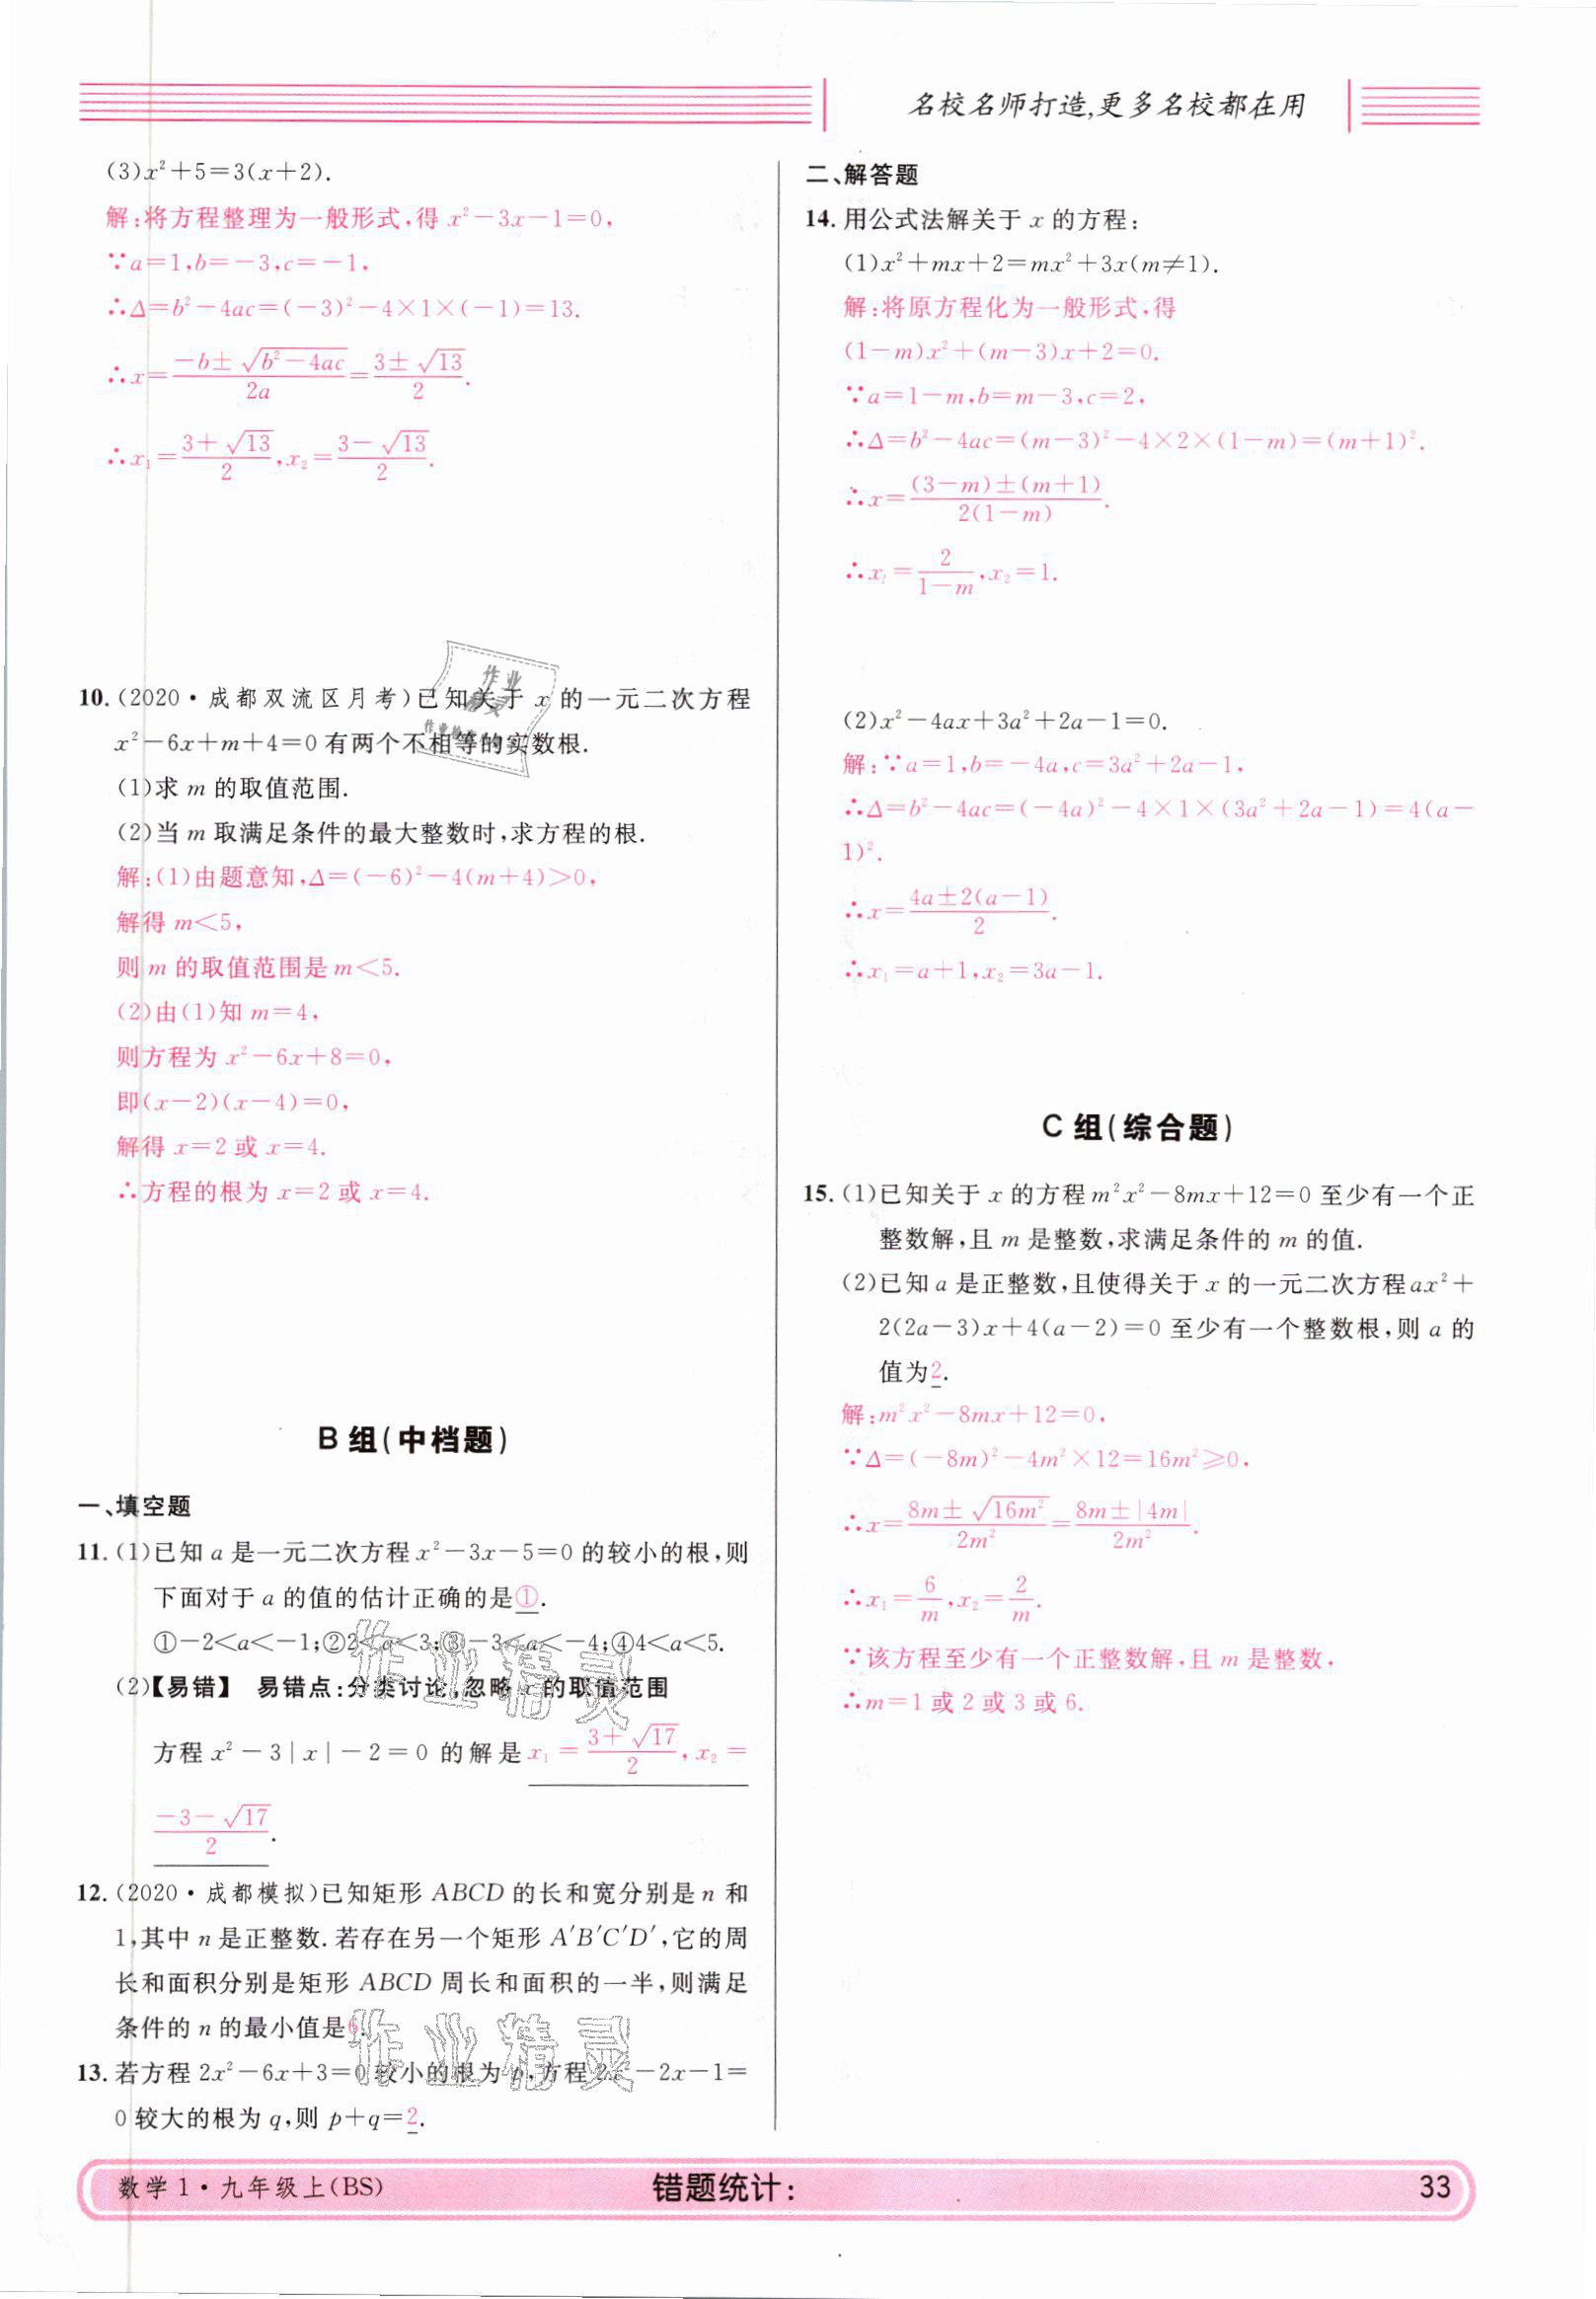 名校名师打造,更多名校都在用
(3)x²+5=3(x+2).
解:将方程整理为一般形式,得 x²-3x-1=0,
∵a=1,b=-3,c=-1,
∴Δ=b²-4ac=(-3)²-4×1×(-1)=13.
∴x=(-b±√(b²-4ac))/2a=(3±√13)/2.
∴x₁=(3+√13)/2,x₂=(3-√13)/2.
10.(2020·成都双流区月考)已知关于 x 的一元二次方程
x²-6x+m+4=0 有两个不相等的实数根.
(1)求 m 的取值范围.
(2)当 m 取满足条件的最大整数时,求方程的根.
解:(1)由题意知,Δ=(-6)²-4(m+4)>0,
解得 m<5,
则 m 的取值范围是 m<5.
(2)由(1)知 m=4,
则方程为 x²-6x+8=0,
即(x-2)(x-4)=0,
解得 x=2 或 x=4.
∴方程的根为 x=2 或 x=4.
B 组(中档题)
一、填空题
11.(1)已知 a 是一元二次方程 x²-3x-5=0 的较小的根,则
下面对于 a 的值的估计正确的是①.
①-2<a<-1;②2<a<3;③-3<a<-4;④4<a<5.
(2)【易错】 易错点:分类讨论,忽略 x 的取值范围
方程 x²-3|x|-2=0 的解是 x₁=(3+√17)/2,x₂=
(-3-√17)/2.
12.(2020·成都模拟)已知矩形 ABCD 的长和宽分别是 n 和
1,其中 n 是正整数.若存在另一个矩形 A′B′C′D′,它的周
长和面积分别是矩形 ABCD 周长和面积的一半,则满足
条件的 n 的最小值是6.
13.若方程 2x²-6x+3=0较小的根为 p,方程 2x²-2x-1=
0较大的根为 q,则 p+q=2.
二、解答题
14.用公式法解关于 x 的方程:
(1)x²+mx+2=mx²+3x(m≠1).
解:将原方程化为一般形式,得
(1-m)x²+(m-3)x+2=0.
∵a=1-m,b=m-3,c=2,
∴Δ=b²-4ac=(m-3)²-4×2×(1-m)=(m+1)².
∴x=((3-m)±(m+1))/2(1-m).
∴x₁=2/(1-m),x₂=1.
(2)x²-4ax+3a²+2a-1=0.
解:∵a=1,b=-4a,c=3a²+2a-1,
∴Δ=b²-4ac=(-4a)²-4×1×(3a²+2a-1)=4(a-
1)².
∴x=(4a±2(a-1))/2.
∴x₁=a+1,x₂=3a-1.
C 组(综合题)
15.(1)已知关于 x 的方程m²x²-8mx+12=0 至少有一个正
整数解,且 m 是整数,求满足条件的 m 的值.
(2)已知 a 是正整数,且使得关于 x 的一元二次方程ax²+
2(2a-3)x+4(a-2)=0 至少有一个整数根,则 a 的
值为2.
解:m²x²-8mx+12=0,
∵Δ=(-8m)²-4m²×12=16m²≥0,
∴x=(8m±√(16m²))/2m²=(8m±|4m|)/2m².
∴x₁=6/m,x₂=2/m.
∵该方程至少有一个正整数解,且 m 是整数,
∴m=1 或 2 或 3 或 6.
作业精灵
作业精灵
作业精灵
数学 1·九年级上(BS)
错题统计:
33